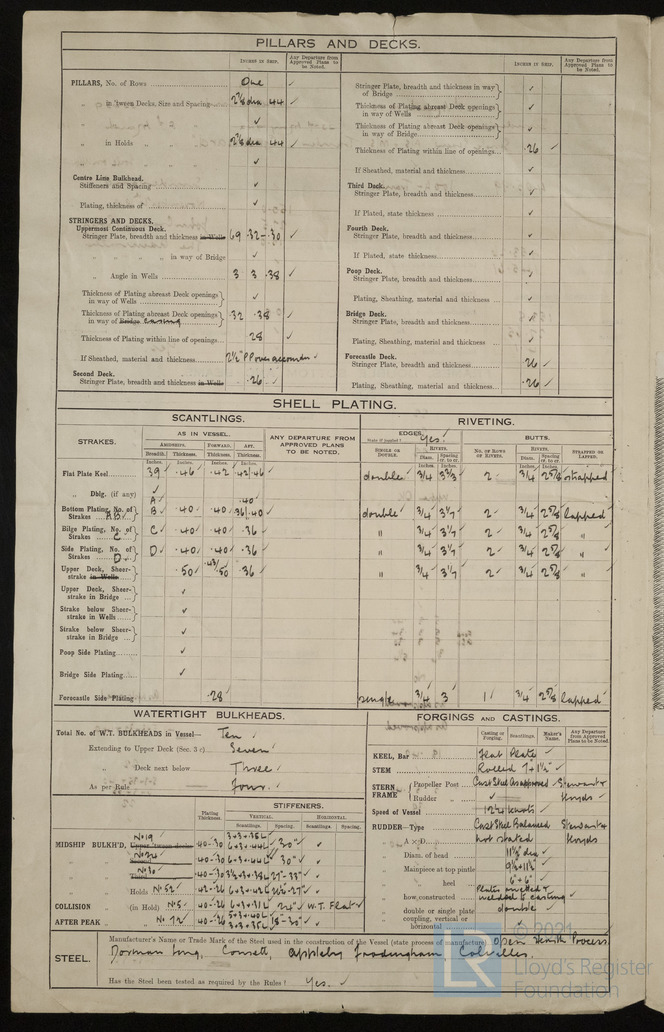 PILLARS AND DECKS.
INCHES IN SHIP.
Any Departure from Approved Plans to be Noted.
PILLARS, No. of Rows One ✓
„ in 'tween Decks, Size and Spacing 2⅞ dia .44 ✓
„ „ „ „ ✓
„ in Holds „ „ 2⅞ dia .44 ✓
„ „ „ „ ✓
Centre Line Bulkhead.
Stiffeners and Spacing ✓
Plating, thickness of ✓
STRINGERS AND DECKS.
Uppermost Continuous Deck.
Stringer Plate, breadth and thickness in Wells 69 .32-.30 ✓
„ „ „ „ in way of Bridge ✓
„ Angle in Wells 3 3 .38 ✓
Thickness of Plating abreast Deck openings in way of Wells ✓
Thickness of Plating abreast Deck openings in way of Bridge casing .32 .38 ✓
Thickness of Plating within line of openings .28 ✓
If Sheathed, material and thickness 2½" P.P. over accomdn ✓
Second Deck.
Stringer Plate, breadth and thickness in Wells .26 ✓
INCHES IN SHIP.
Any Departure from Approved Plans to be Noted.
Stringer Plate, breadth and thickness in way of Bridge ✓
Thickness of Plating abreast Deck openings in way of Wells ✓
Thickness of Plating abreast Deck openings in way of Bridge ✓
Thickness of Plating within line of openings .26 ✓
If Sheathed, material and thickness ✓
Third Deck.
Stringer Plate, breadth and thickness ✓
If Plated, state thickness ✓
Fourth Deck.
Stringer Plate, breadth and thickness ✓
If Plated, state thickness ✓
Poop Deck.
Stringer Plate, breadth and thickness ✓
Plating, Sheathing, material and thickness ✓
Bridge Deck.
Stringer Plate, breadth and thickness ✓
Plating, Sheathing, material and thickness ✓
Forecastle Deck.
Stringer Plate, breadth and thickness .26 ✓
Plating, Sheathing, material and thickness .26 ✓
SHELL PLATING.
SCANTLINGS.
RIVETING.
STRAKES.
AS IN VESSEL.
AMIDSHIPS. FORWARD. AFT.
Breadth. Thickness. Thickness. Thickness.
Inches. Inches. Inches. Inches.
ANY DEPARTURE FROM APPROVED PLANS TO BE NOTED.
EDGES. Yes!
State if joggled?
SINGLE OR DOUBLE.
RIVETS.
Diam. Spacing cr. to cr.
BUTTS.
NO. OF ROWS OF RIVETS.
RIVETS.
Diam. Spacing cr. to cr.
STRAPPED OR LAPPED.
Flat Plate Keel 39 .46 .42 .42/.46 double ¾ 2 ¾ 2⅝ strapped
„ Dblg. (if any) ✓
Bottom Plating, No. of Strakes A B A B .40 .40 .40 .36/.40 double ¾ 3⅐ 2 ¾ 2⅝ lapped
Bilge Plating, No. of Strakes C C .40 .40 .36 „ ¾ 3⅐ 2 ¾ 2⅝ „
Side Plating, No. of Strakes D D .40 .40 .36 „ ¾ 3⅐ 2 ¾ 2⅝ „
Upper Deck, Sheerstrake in Wells .50 .43/.50 .36 „ ¾ 3⅐ 2 ¾ 2⅝ „
Upper Deck, Sheerstrake in Bridge ✓
Strake below Sheerstrake in Wells ✓
Strake below Sheerstrake in Bridge ✓
Poop Side Plating ✓
Bridge Side Plating ✓
Forecastle Side Plating .28 single ¾ 3 1 ¾ 2⅝ lapped
WATERTIGHT BULKHEADS.
Total No. of W.T. BULKHEADS in Vessel— Ten
Extending to Upper Deck (Sec. 3 c) Seven
„ Deck next below Three
As per Rule Four
Plating Thickness.
STIFFENERS.
VERTICAL. HORIZONTAL.
Scantlings. Spacing. Scantlings. Spacing.
MIDSHIP BULKH'D, No 19 Upper 'tween decks .40-.30 30" ✓
No 24 Second .40-.30 6×3×.44 30" ✓
No 30 Third .40-.30 27"-33" ✓
„ Holds No 52 .42-.26 ✓
COLLISION „ (in Hold) No 5 .40-.26 24" W.T. Flat
AFTER PEAK „ No 72 .40-.26 18"-30" ✓
FORGINGS AND CASTINGS.
Casting or Forging. Scantlings. Maker's Name. Any Departure from Approved Plans to be Noted.
KEEL, Bar Flat Plate ✓
STEM Rolled 7 × 1½" ✓
STERN FRAME Propeller Post Cast Steel As approved Stewart &
Rudder „ ✓ Lloyds
Speed of Vessel 12¼ knots ✓
RUDDER—Type Cast Steel Balanced Stewart &
„ A × D not stated Lloyds
„ Diam. of head
„ Mainpiece at top pintle
„ „ heel 6" × 6" ✓
„ how constructed Plates riveted & welded to casting ✓
„ double or single plate double ✓
„ coupling, vertical or horizontal
STEEL.
Manufacturer's Name or Trade Mark of the Steel used in the construction of the Vessel (state process of manufacture) Open Hearth Process.
Dorman Long, Consett, Appleby Frodingham, Colvilles.
Has the Steel been tested as required by the Rules? Yes. ✓
© 2021
LR
Lloyd's Register
Foundation